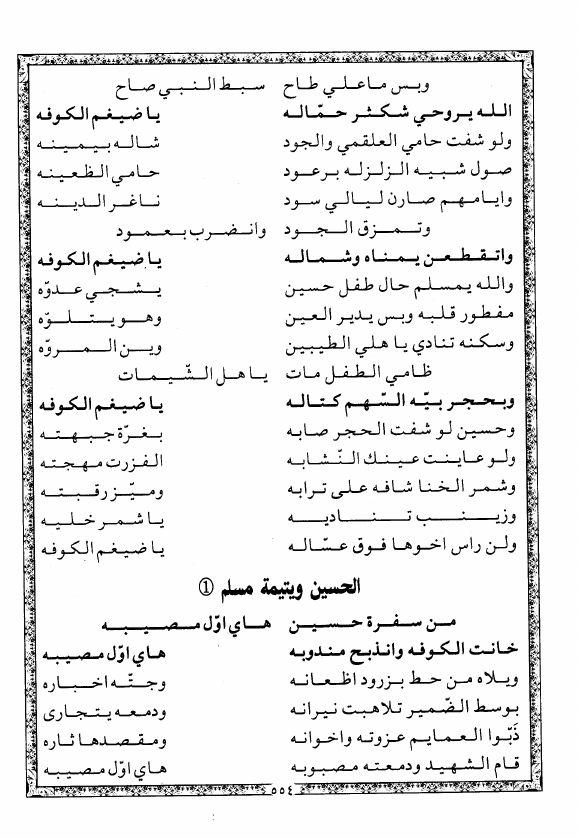 وبس ماعلي طاح سبط النبي صاح
الله يروحي شكثر حمّاله يا ضيغم الكوفه
ولو شفت حامي العلقمي والجود شاله بيمينه
صول شبيه الزلزله برعود حامي الظعينه
وايامهم صارن ليالي سود ناغر الدينه
وتمزق الجود وانضرب بعمود
واتقطعن يمناه وشماله يا ضيغم الكوفه
والله يمسلم حال طفل حسين يشجي عدوّه
مفطور قلبه وبس يدير العين وهو يتلوّه
وسكنه تنادي يا هلي الطيبين وين المروّه
ظامي الطفل مات يا هل الشّيمات
وبحجر بيّه السّهم كتاله يا ضيغم الكوفه
وحسين لو شفت الحجر صابه بغرّة جبهته
ولو عاينت عينك النّشابه الفزرت مهجته
وشمر الخنا شافه على ترابه وميّز رقبته
وزينب تناديه يا شمر خليه
ولن راس اخوها فوق عسّاله يا ضيغم الكوفه
الحسين ويتيمة مسلم ①
من سفرة حسين هاي اوّل مصيبه
خانت الكوفه وانذبح مندوبه هاي اوّل مصيبه
ويلاه من حط بزرود اظعانه وجتّه اخباره
بوسط الضّمير تلاهبت نيرانه ودمعه يتجارى
ذَبّوا العمايم عزوته واخوانه ومقصدها ثاره
قام الشهيد ودمعته مصبوبه هاي اوّل مصيبه
٥٥٤